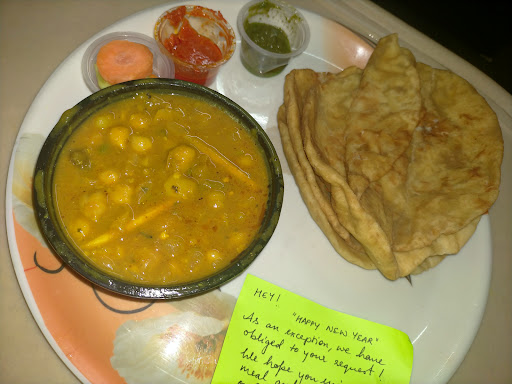 HEY!
"HAPPY NEW YEAR"
As an exception, we have
obliged to your request!
We hope you
meal